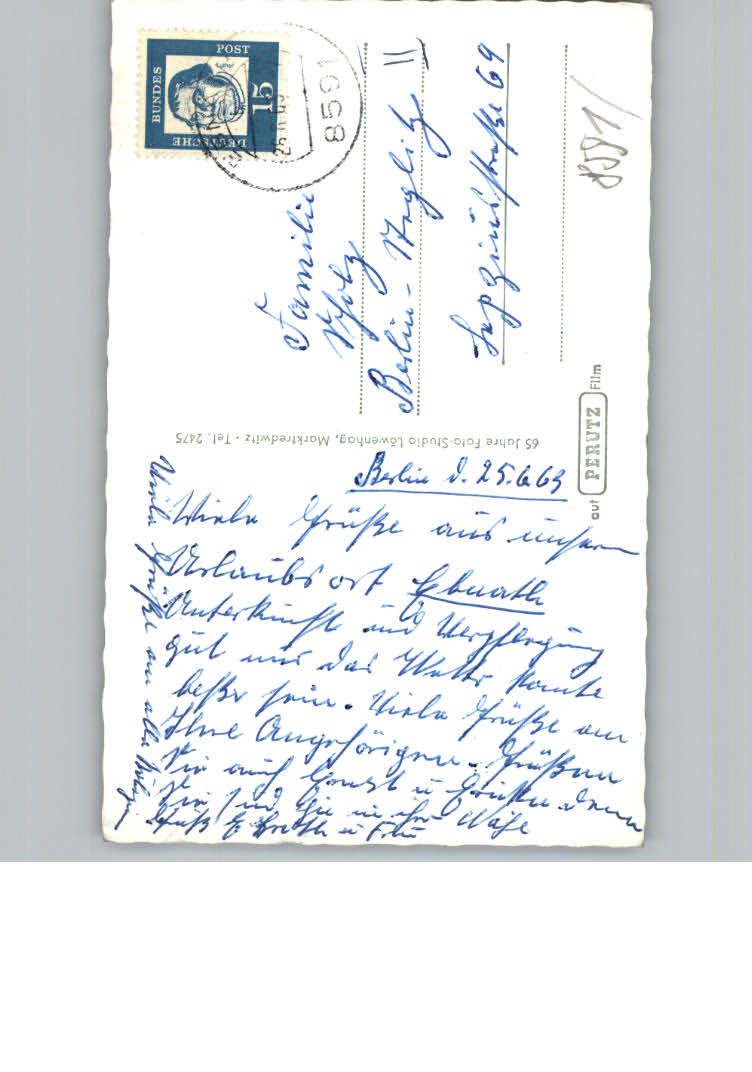 DEUTSCHE
BUNDES
POST
15
8591
8591/
Familie
Berlin - Steglitz
11
straße 69
65 Jahre Foto-Studio Löwenhag, Marktredwitz · Tel. 2475
auf PERUTZ Film
Berlin d. 25.6.63
Viele Grüße aus unserm
Urlaubsort Ebnath
Unterkunft und Verpflegung
gut nur das Wetter könnte
beßer sein. Viele Grüße an
Ihre Angehörigen. Grüßen
Sie auch u
Sie sind Sie in Ihre Nähe
Gruß u Frau
Viele Grüße an alle